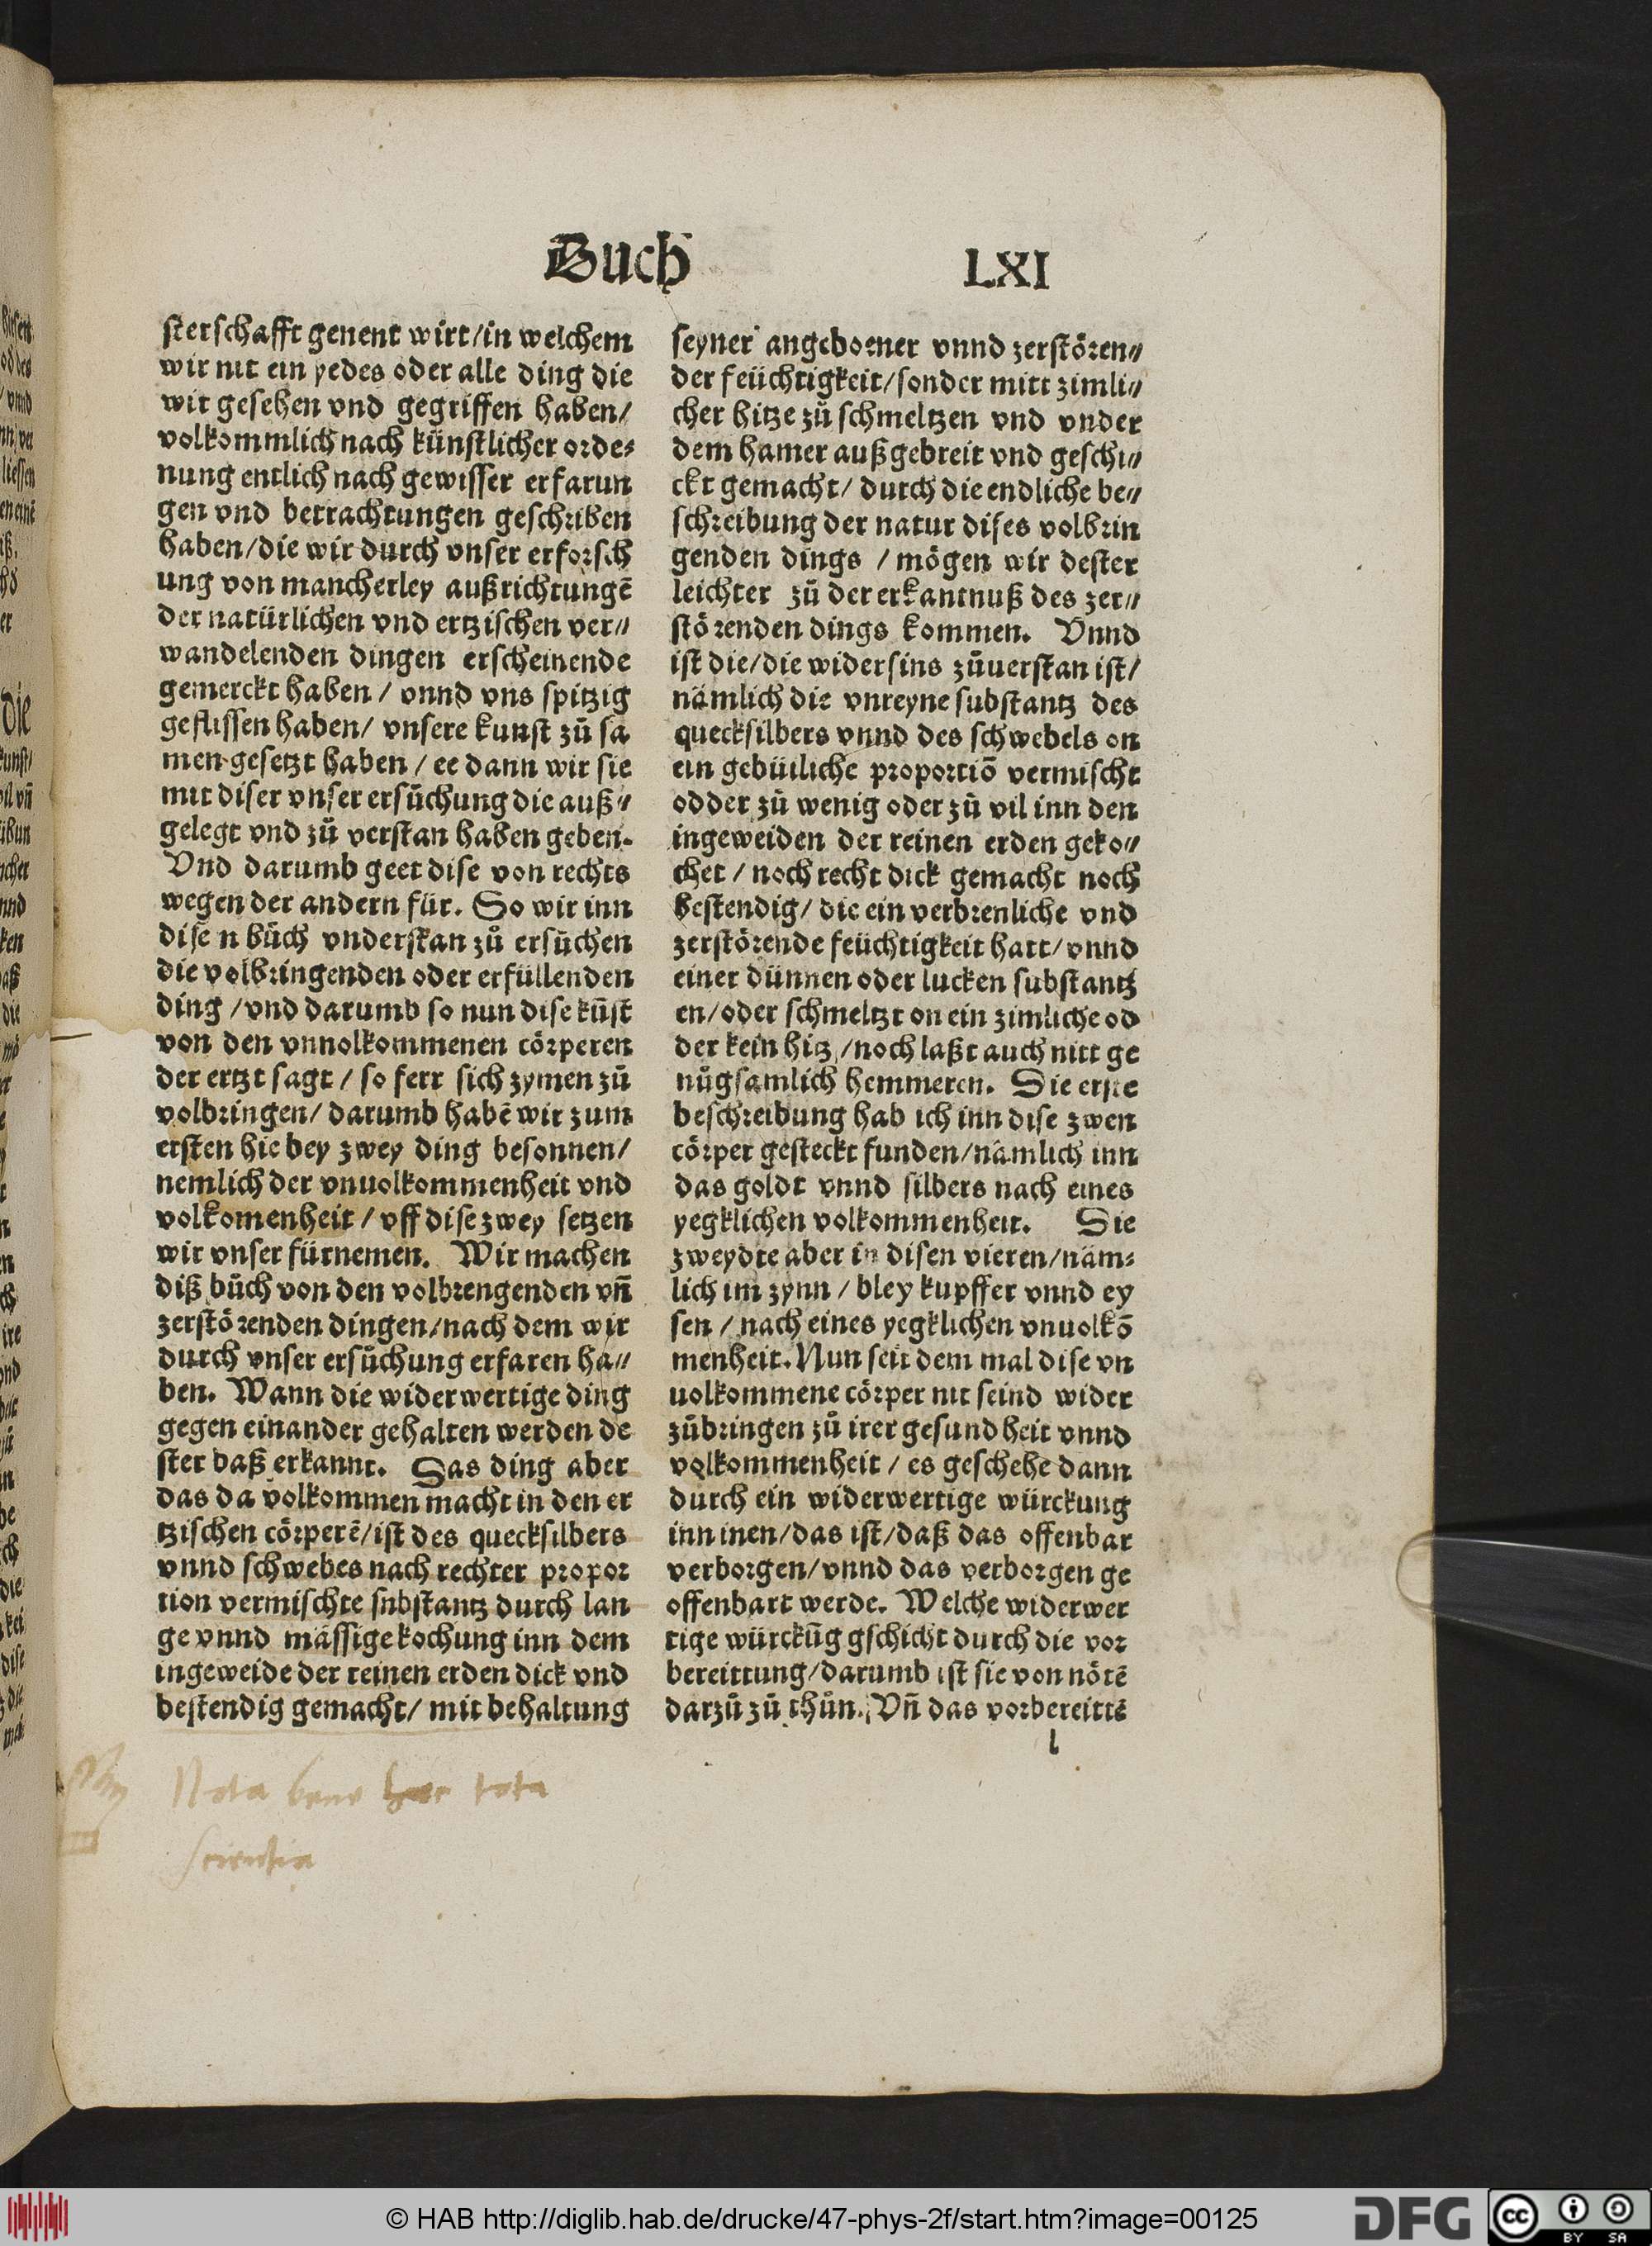 Buch LXI
sterschafft genent wirt/in welchem
wir nit ein yedes oder alle ding die
wir gesehen vnd gegriffen haben/
volkommlich nach künstlicher orde⸗
nung entlich nach gewisser erfarun
gen vnd betrachtungen geschriben
haben/die wir durch vnser erforsch
ung von mancherley außrichtungē
der natürlichen vnd ertzischen ver⸗
wandelenden dingen erscheinende
gemerckt haben / vnnd vns spitzig
geflissen haben/ vnsere kunst zů sa
men gesetzt haben / ee dann wir sie
mit diser vnser ersůchung die auß⸗
gelegt vnd zů verstan haben geben.
Vnd darumb geet dise von rechts
wegen der andern für. So wir inn
dise n bůch vnderstan zů ersůchen
die volbringenden oder erfüllenden
ding /vnd darumb so nun dise kūst
von den vnnolkommenen cörperen
der ertzt sagt / so ferr sich zymen zů
volbringen/ darumb habē wir zum
ersten hie bey zwey ding besonnen/
nemlich der vnuolkommenheit vnd
volkomenheit / vff dise zwey setzen
wir vnser fürnemen. Wir machen
diß bůch von den volbrengenden vñ
zerstörenden dingen/nach dem wir
durch vnser ersůchung erfaren ha⸗
ben. Wann die widerwertige ding
gegen einander gehalten werden de
ster baß erkannt. Das ding aber
das da volkommen macht in den er
tzischen cörperē/ist des quecksilbers
vnnd schwebes nach rechter propor
tion vermischte snbstantz durch lan
ge vnnd mässige kochung inn dem
ingeweide der reinen erden dick vnd
bestendig gemacht/ mit behaltung
seyner angeboener vnnd zerstören⸗
der feüchtigkeit/sonder mitt zimli⸗
cher hitze zů schmeltzen vnd vnder
dem hamer außgebreit vnd geschi⸗
ckt gemacht/ durch die endliche be⸗
schreibung der natur dises volbrin
genden dings / mögen wir dester
leichter zů der erkantnuß des zer⸗
störenden dings kommen. Vnnd
ist die/die widersins zůuerstan ist/
nämlich die vnreyne substantz des
quecksilbers vnnd des schwebels on
ein gebürliche proportiō vermischt
odder zů wenig oder zů vil inn den
ingeweiden der reinen erden geko⸗
chet / noch recht dick gemacht noch
bestendig/ die ein verbrenliche vnd
zerstörende feüchtigkeit hatt/vnnd
einer dünnen oder lucken substantz
en/oder schmeltzt on ein zimliche od
der kein hitz /noch laßt auch nitt ge
nůgsamlich hemmeren. Die erste
beschreibung hab ich inn dise zwen
cörper gesteckt funden/nämlich inn
das goldt vnnd silbers nach eines
yegklichen volkommenheit. Die
zweydte aber in disen vieren/näm⸗
lich im zynn / bley kupffer vnnd ey
sen / nach eines yegklichen vnuolkō
menheit. Nun seit dem mal dise vn
uolkommene cörper nit seind wider
zůbringen zů irer gesundheit vnnd
volkommenheit / es geschehe dann
durch ein widerwertige würckung
inn inen/das ist/daß das offenbar
verborgen/vnnd das verborgen ge
offenbart werde. Welche widerwer
tige würckūg gschicht durch die vor
bereittung/darumb ist sie von nötē
darzů zů thůn. Vñ das vorbereittē
l
Nota bene hec tota
scientia
© HAB http://diglib.hab.de/drucke/47-phys-2f/start.htm?image=00125
DFG
cc BY SA